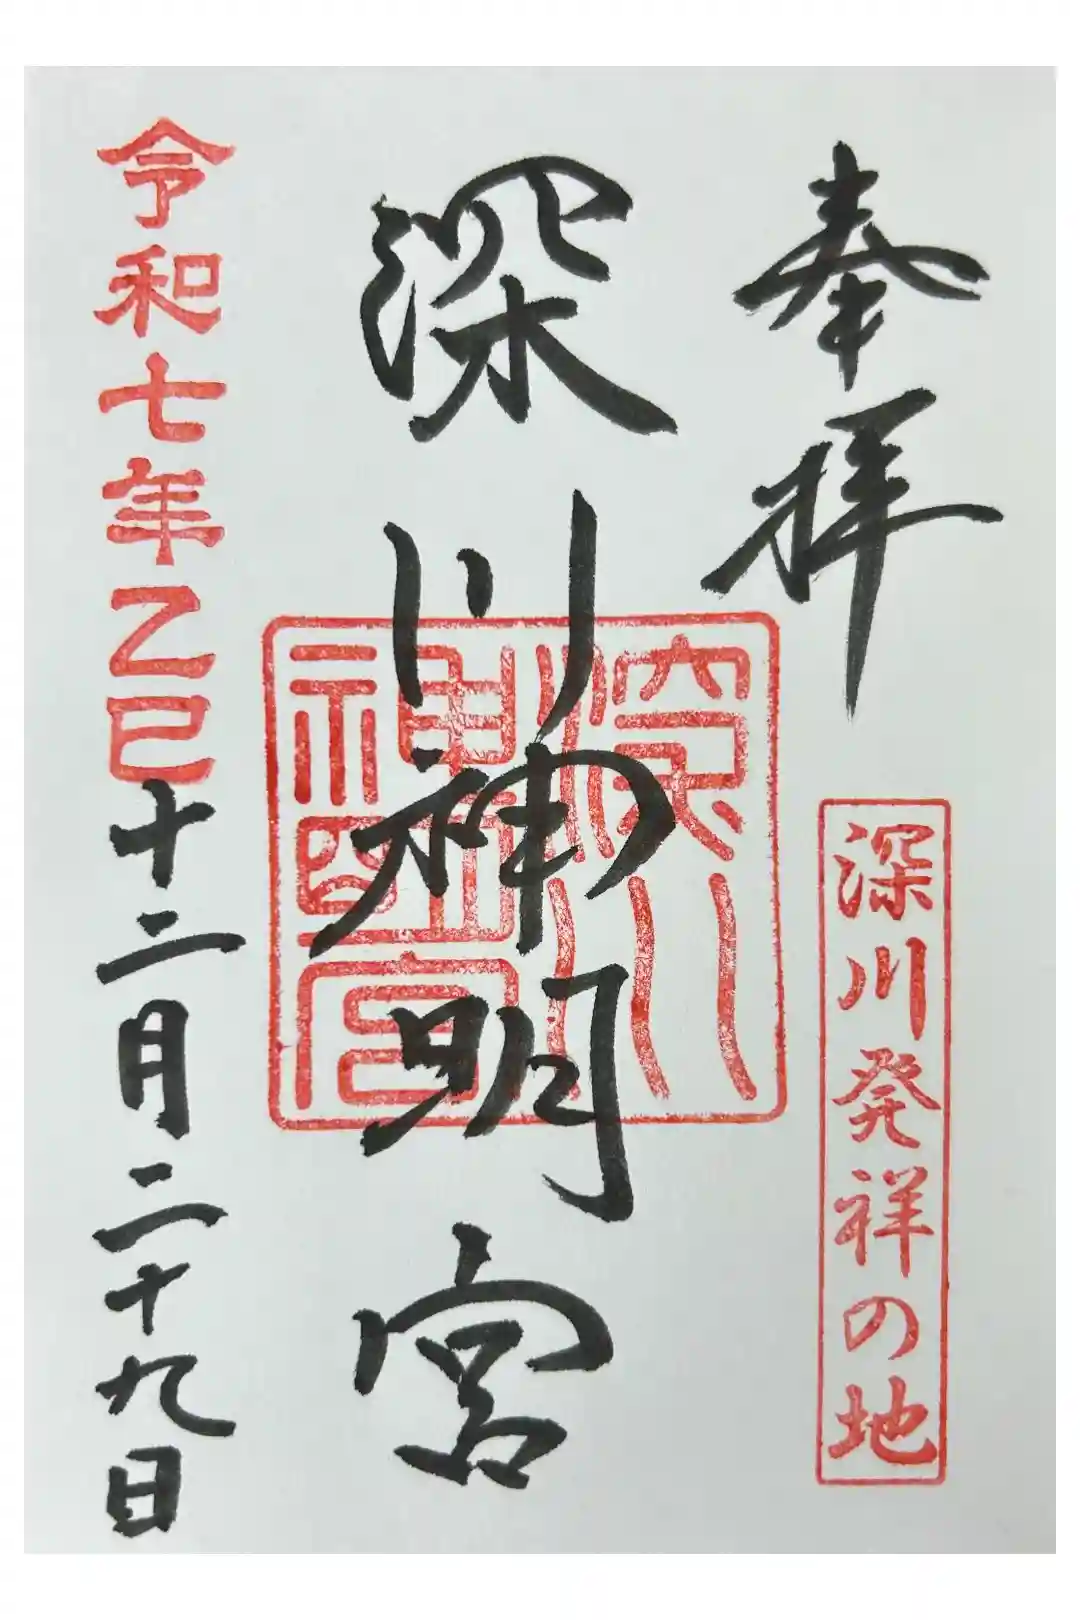 奉拝
深川発祥の地
深川神明宮
深川
神明宮
令和七年乙巳十二月二十九日